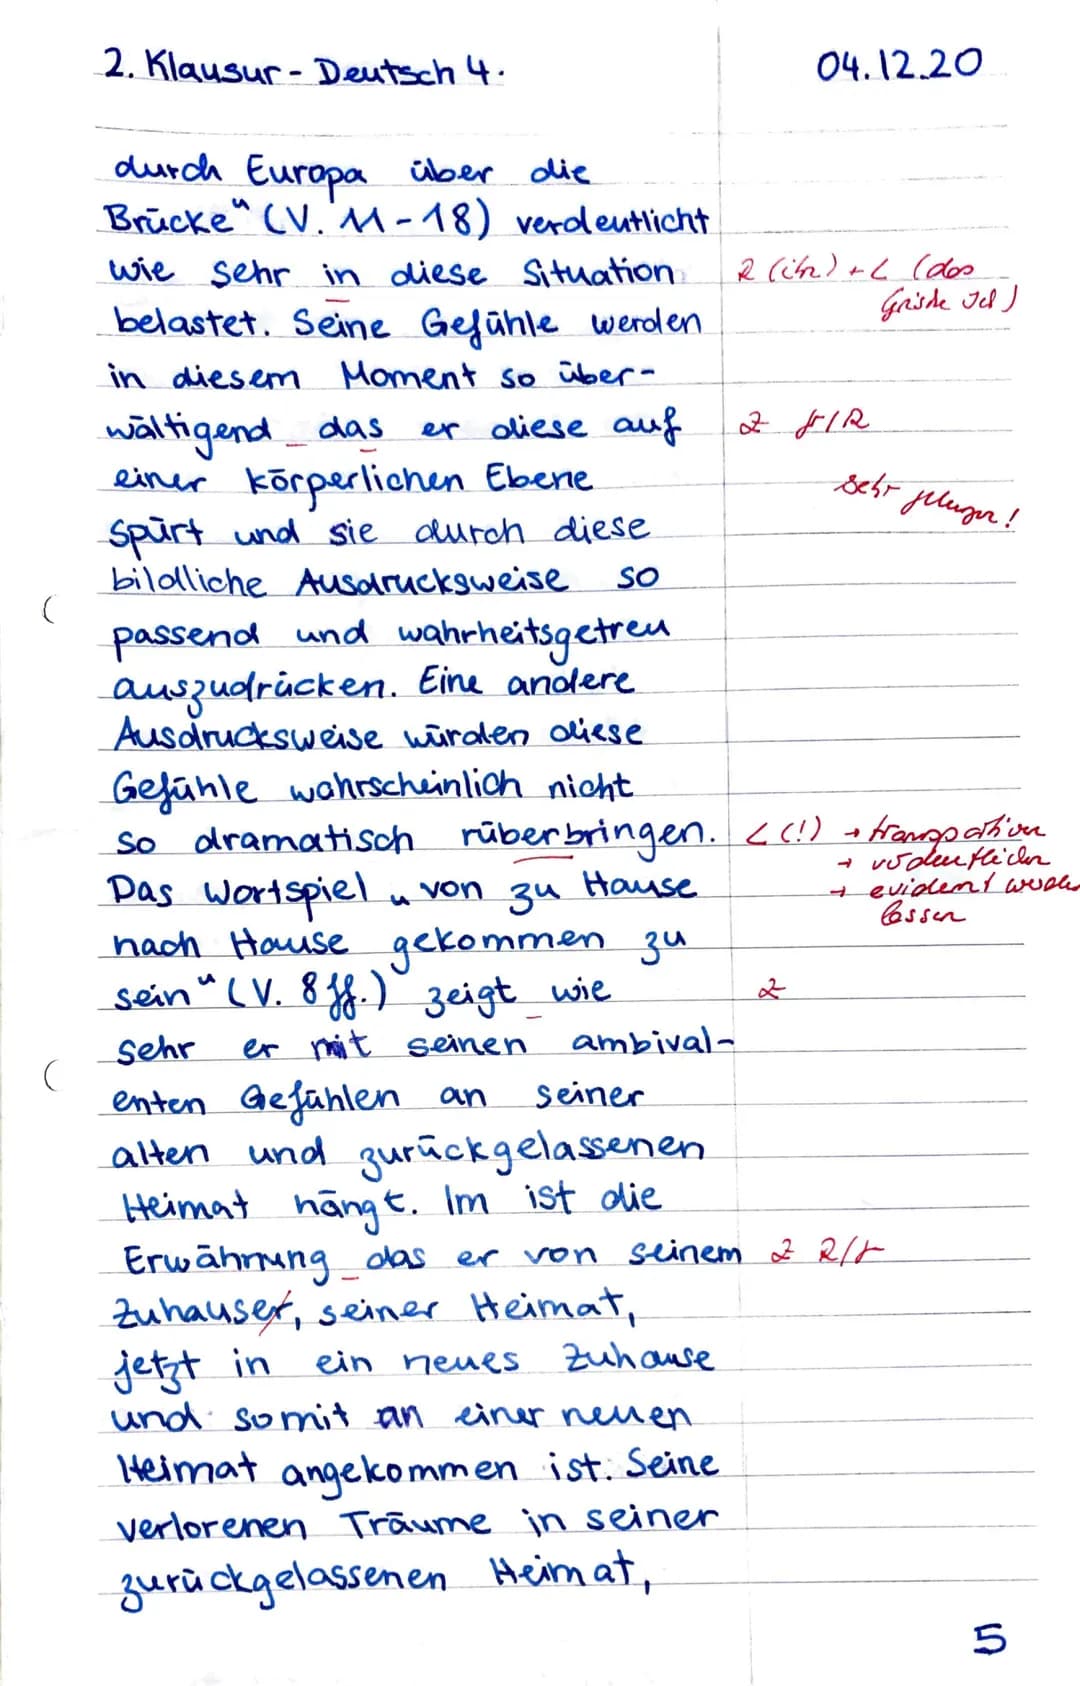 2. Klausur - Deutsch 4.
04.12.20
durch Europa über die
Brücke" (V. 11-18) verdeutlicht
wie sehr in diese Situation
R (ihn) + L (das
lyrische Ich)
belastet. Seine Gefühle werden
in diesem Moment so über-
wältigend das er diese auf
Z Gr/R
einer körperlichen Ebene
sehr gelungen!
spürt und sie durch diese
bildliche Ausdrucksweise so
passend und wahrheitsgetreu
auszudrücken. Eine andere
Ausdrucksweise würden diese
Gefühle wahrscheinlich nicht
so dramatisch rüberbringen.
L (!) → transportieren
→ verdeutlichen
→ evident werden
lassen
Das Wortspiel „von zu Hause
nach Hause gekommen zu
sein" (V. 8 ff.) zeigt wie
Z
sehr er mit seinen ambival-
enten Gefühlen an seiner
alten und zurückgelassenen
Heimat hängt. Im ist die
Erwähnung das er von seinem
Z R/Gr
Zuhauser, seiner Heimat,
jetzt in ein neues Zuhause
und somit an einer neuen
Heimat angekommen ist. Seine
verlorenen Träume in seiner
zurückgelassenen Heimat,
5